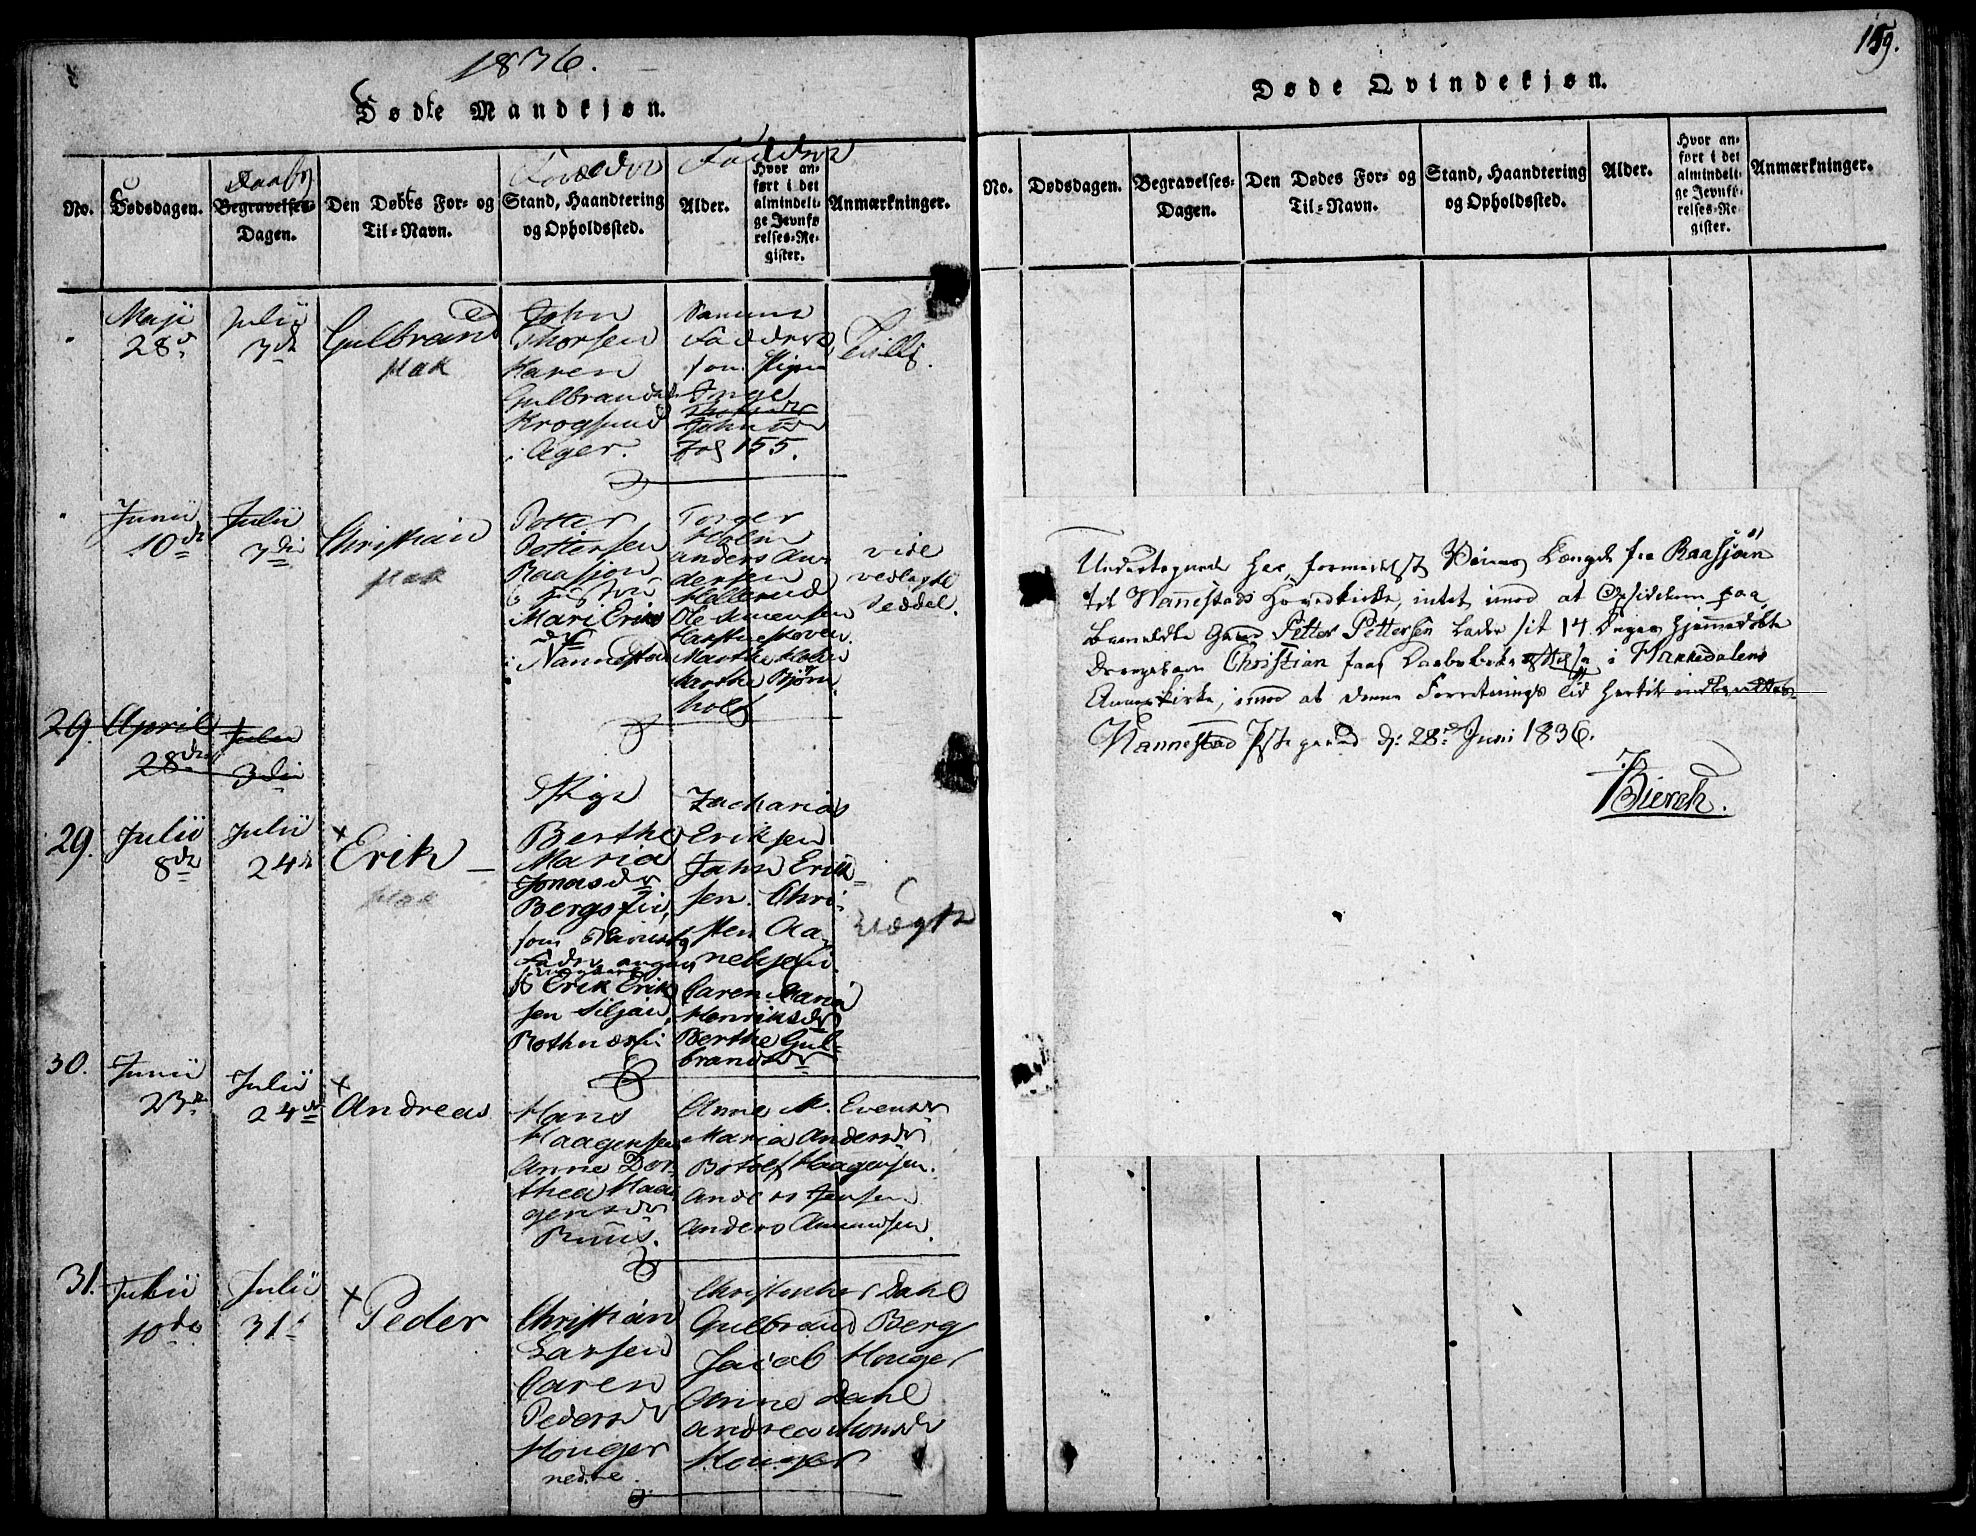 1836.
Dødte Mandkjøn.
Foreldre Faddere
No.
Dødsdagen.
Daabs
Begravelses-
Dagen.
Den Dødes For- og
Til-Navn.
Stand, Haandtering
og Opholdssted.
Alder.
Hvor an-
ført i det
almindeli-
ge Jevnfø
relses-Re-
gister.
Anmærkninger.
Maji
28d
Julii
3di
Gulbrand
John
Thorsen
Karen
Gulbrandsd
Krogsund
i Ager.
Samme
Faddere
som Pigen
Inge
Johnsdr
Fol 155.
Junii
10de
Julii
3di
Christian
Petter
Pettersen
Raasjøn
Mari Eriks
dr
i Nannestad
Torger
Holm
Anders An-
dersen
Møllerud
Ole Amensen
Marthe Holm
Marthe Bjørn
holt
vide
vedlagte
Seddel.
29. April
28de
Julii
3di
29.
Julii
8de
Julii
24d
Erik
Pige
Berthe
Maria
Jonasdr
Bergstui,
som
Fader angav
Erik Erik
sen Siljau,
Zacharias
Eriksen
John Erik
sen. Chri-
sten Aa-
nebye
Caren Maria
Henriksdr
Berthe Gul-
brandsdr
30.
Junii
23d
Julii
24de
Andreas
Hans
Haagensen
Anne Dor-
thea Haa
gensdr
Ruus.
Anne M. Evensdr
Maria Andersdr
Botolf Haagensen.
Anders Jensen
Anders Amundsen.
31.
Julii
10de
Julii
31t
Peder
Christian
Larsen
Caren
Pedersdr
Houger
nedre.
Christopher Dahl
Gulbrand Berg
Jacob Houger
Anne Dahl
Andrea Monsdr
Houger
159.
Døde Qvindekjøn.
No.
Dødsdagen.
Begravelses-
Dagen.
Den Dødes For- og
Til-Navn.
Stand, Haandtering
og Opholdssted.
Alder.
Hvor an-
ført i det
almindeli-
ge Jevnfø-
relses-Re-
gister.
Anmærkninger.
Undertegnede har, formedelst Veiens Længde fra Raasjøen
til Nannestads Hovedkirke, intet imod at Opsidderen paa
bemeldte Gaard Petter Pettersen lader sit 14 Dager hjemmedøbte
Drengebarn Christian faae Daabsbekræftelse i Hakkedalens
Annexkirke, imod at denne Forretnings Tid hertil indberettes
Nannestad Præstegaard d: 28de Juni 1836.
Bierch.